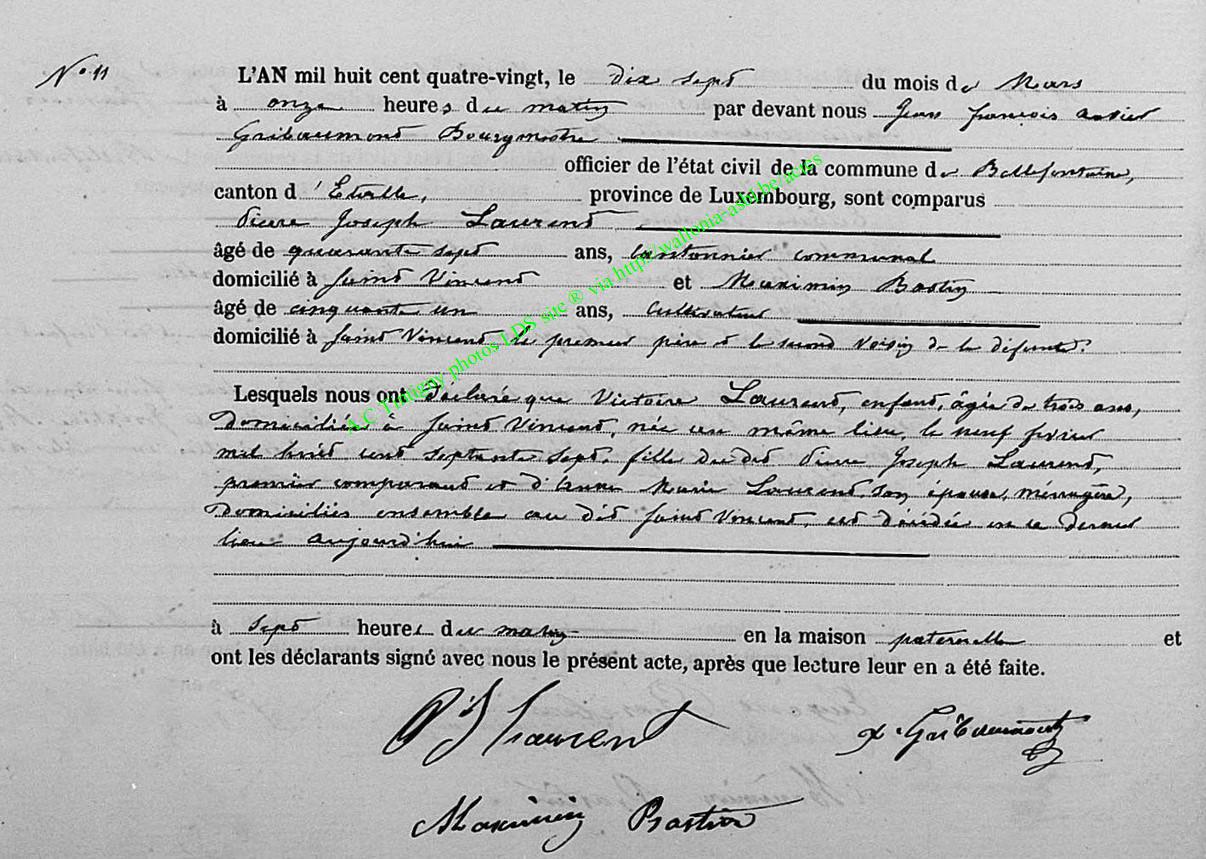 N° 11
L'AN mil huit cent quatre-vingt, le dix sept du mois de Mars
à onze heures du matin par devant nous Jean François Xavier
Gribaumont Bourgmestre
officier de l'état civil de la commune de Bellefontaine,
canton d'Etalle, province de Luxembourg, sont comparus
Pierre Joseph Laurent
âgé de quarante sept ans, cantonnier communal
domicilié à Saint Vincent et Maximin Bastin
âgé de cinquante un ans, cultivateur
domicilié à Saint Vincent le premier père et le second voisin de la défunte.
Lesquels nous ont déclaré que Victoire Laurent, enfant, âgée de trois ans,
domiciliée à Saint Vincent, née au même lieu, le neuf février
mil huit cent septante sept, fille du dit Pierre Joseph Laurent,
premier comparant et d'Anne Marie Laurent, son épouse, ménagère,
domiciliés ensemble au dit Saint Vincent, est décédée en ce dernier
lieu aujourd'hui
à sept heures du matin en la maison paternelle et
ont les déclarants signé avec nous le présent acte, après que lecture leur en a été faite.
PJ Laurent
x. Gribaumont
Maximin Bastin
A.C. Thirigny photos LDS site ® via http://wallonia-asbl.be/actes